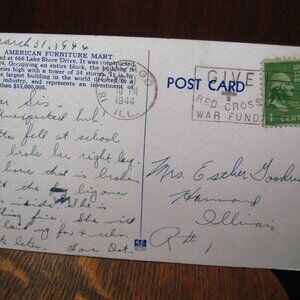 March 31, 1944
AMERICAN FURNITURE MART
at 666 Lake Shore Drive. It was constructed
24. Occupying an entire block, the building is
ories high with a tower of 34 stories. It is
e largest building in the world devoted to an
industry, and represents an investment of
than $15,000,000.
Sis -
Unexpected huh!
fell at school
broke her right leg.
bone that is broken
the big one
She is
fine. She will
laid up for 6 weeks.
later. Love Dot.
CHICAGO
1944
ILL.
POST CARD
GIVE
RED CROSS
WAR FUND
1 CENT
Mrs. Esther
Hammond
Illinois
R # 1